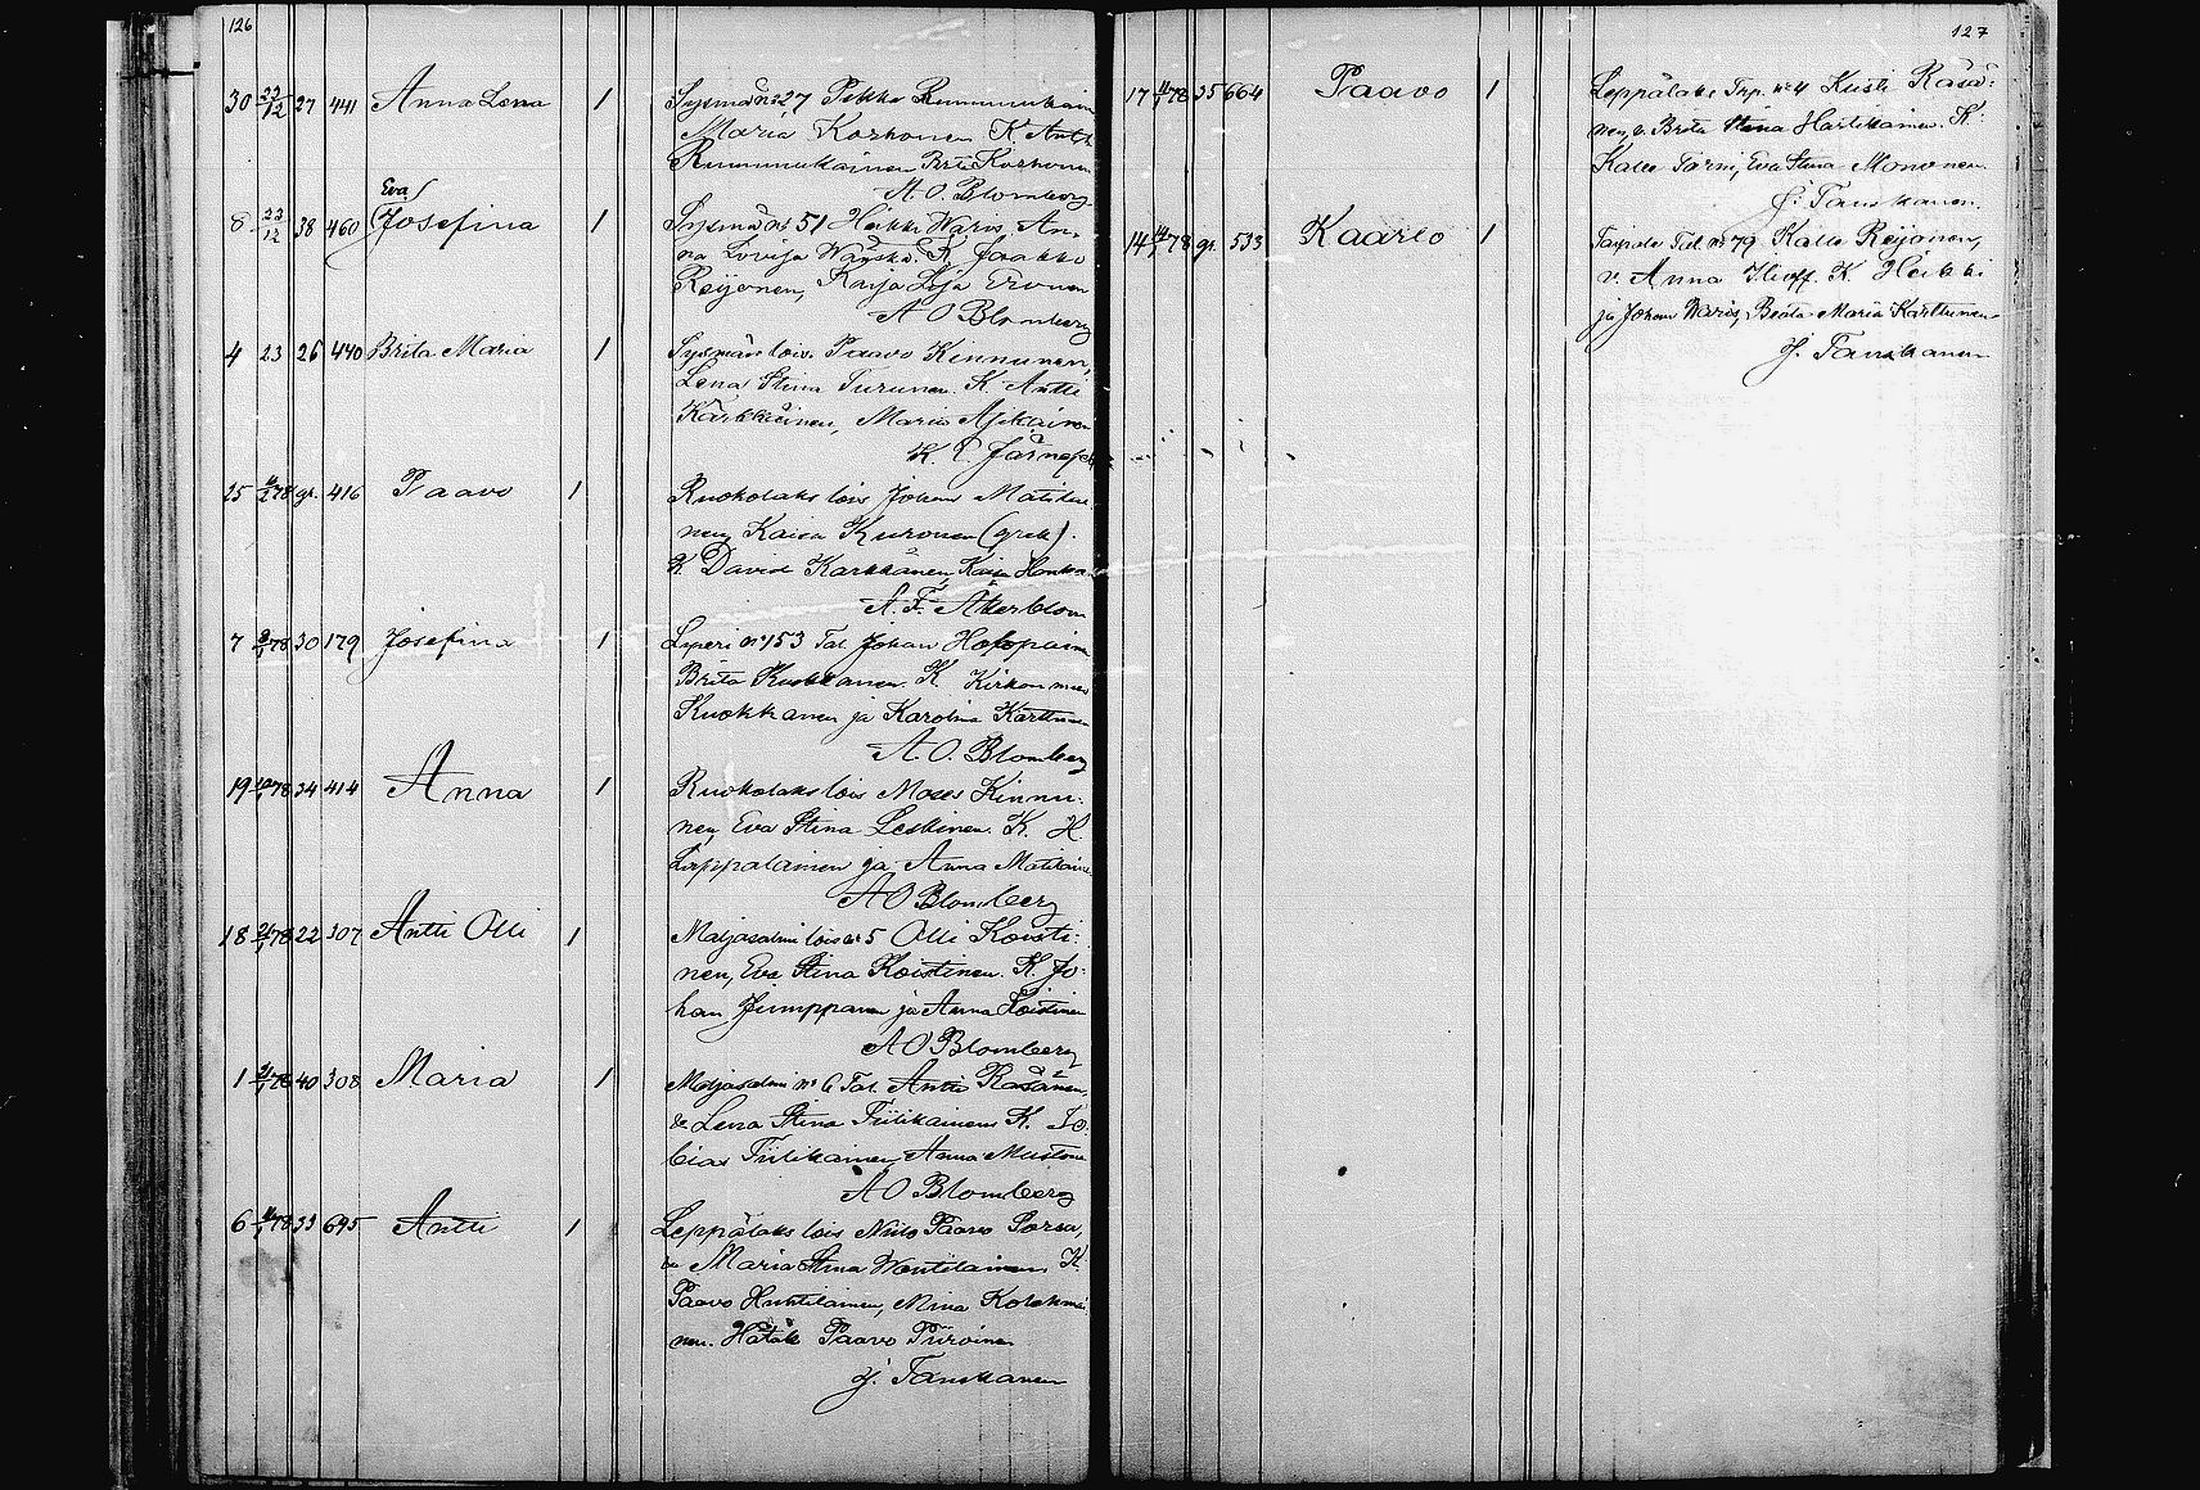 126
30 23/12 27 441 Anna Lena 1 Sysmä No 27 Pekka Rummukain
Maria Korhonen K. Antti
Rummukainen Brta Korhonen
A. O. Blomberg
Eva
8 23/12 38 460 Josefina 1 Sysmä No 51 Heikki Waris An-
na Lovisa K. Jaakko
Reijonen, Kaija Lisa
A O Blomberg
4 23 26 440 Brita Maria 1 Sysmän lois. Paavo Kinnunen,
Lena Stina Turunen. K. Antti
Kärkkäinen, Maria
K. Järnef
25 gr. 416 Paavo 1 Ruokolaks lois Johan Matikai
nen, Kaisa Kuronen (grek).
K. David Karkkänen, Kaisa Honka
A. F. Åkerblom
7 78 30 179 Josefina 1 Liperi No 153 Tal. Johan Holopainen
Brita Kuokkanen. K. Kirkon mies
Kuokkanen ja Karolina Karttunen
A. O. Blomberg
19 78 34 414 Anna 1 Ruokolaks lois Moses Kinnu-
nen, Eva Stina Leskinen. K. H.
Lappalainen ja Anna Matilaine
A O Blomberg
18 21/1 78 22 307 Antti Olli 1 Maljasalmi lois No 5 Olli Koisti-
nen, Eva Stina Koistinen. K. Jo-
han Jumppanen ja Anna Koistinen
A O Blomberg
1 21/1 78 40 308 Maria 1 Maljasalmi No 6 Tal. Antti Räsänen,
& Lena Stina Tiilikainen K. To-
bias Tiilikainen, Anna Mustone
A O Blomberg
6 11/1 78 33 695 Antti 1 Leppälaks lois Niilo Paavo Sorsa,
Maria Stina Wentilainen K.
Paavo Huttilainen, Mina Kolehmai
nen. Hätäk Paavo Piiroinen
J. Tanskanen
127
17 11/1 78 35 664 Paavo 1 Leppälaks Trp. No 4 Kusti Räsä-
nen, v. Brita Stina Hartikainen. K.
Kalle Tarni, Eva Stina Mononen.
J. Tanskanen.
14 14/1 78 gr. 533 Kaarlo 1 Taipale Til. No 79 Kalle Reijonen,
v. Anna Ilioff. K. Heikki
ja Johan Waris, Beata Maria Karttunen
J. Tanskanen